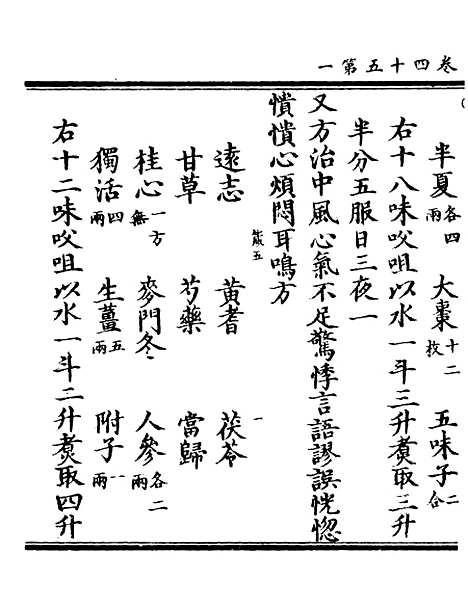 卷四十五第一
半夏各四兩 大棗十二枚 五味子二合
右十八味㕮咀以水一斗三升煑取三升
半分五服日三夜一
又方治中風心氣不足驚悸言語謬誤恍惚
憒憒心煩悶耳鳴方
遠志 黃耆 茯苓
甘草 芍藥 當歸
桂心一方無 麥門冬 人參各二兩
獨活四兩 生薑五兩 附子一兩
右十二味㕮咀以水一斗二升煑取四升